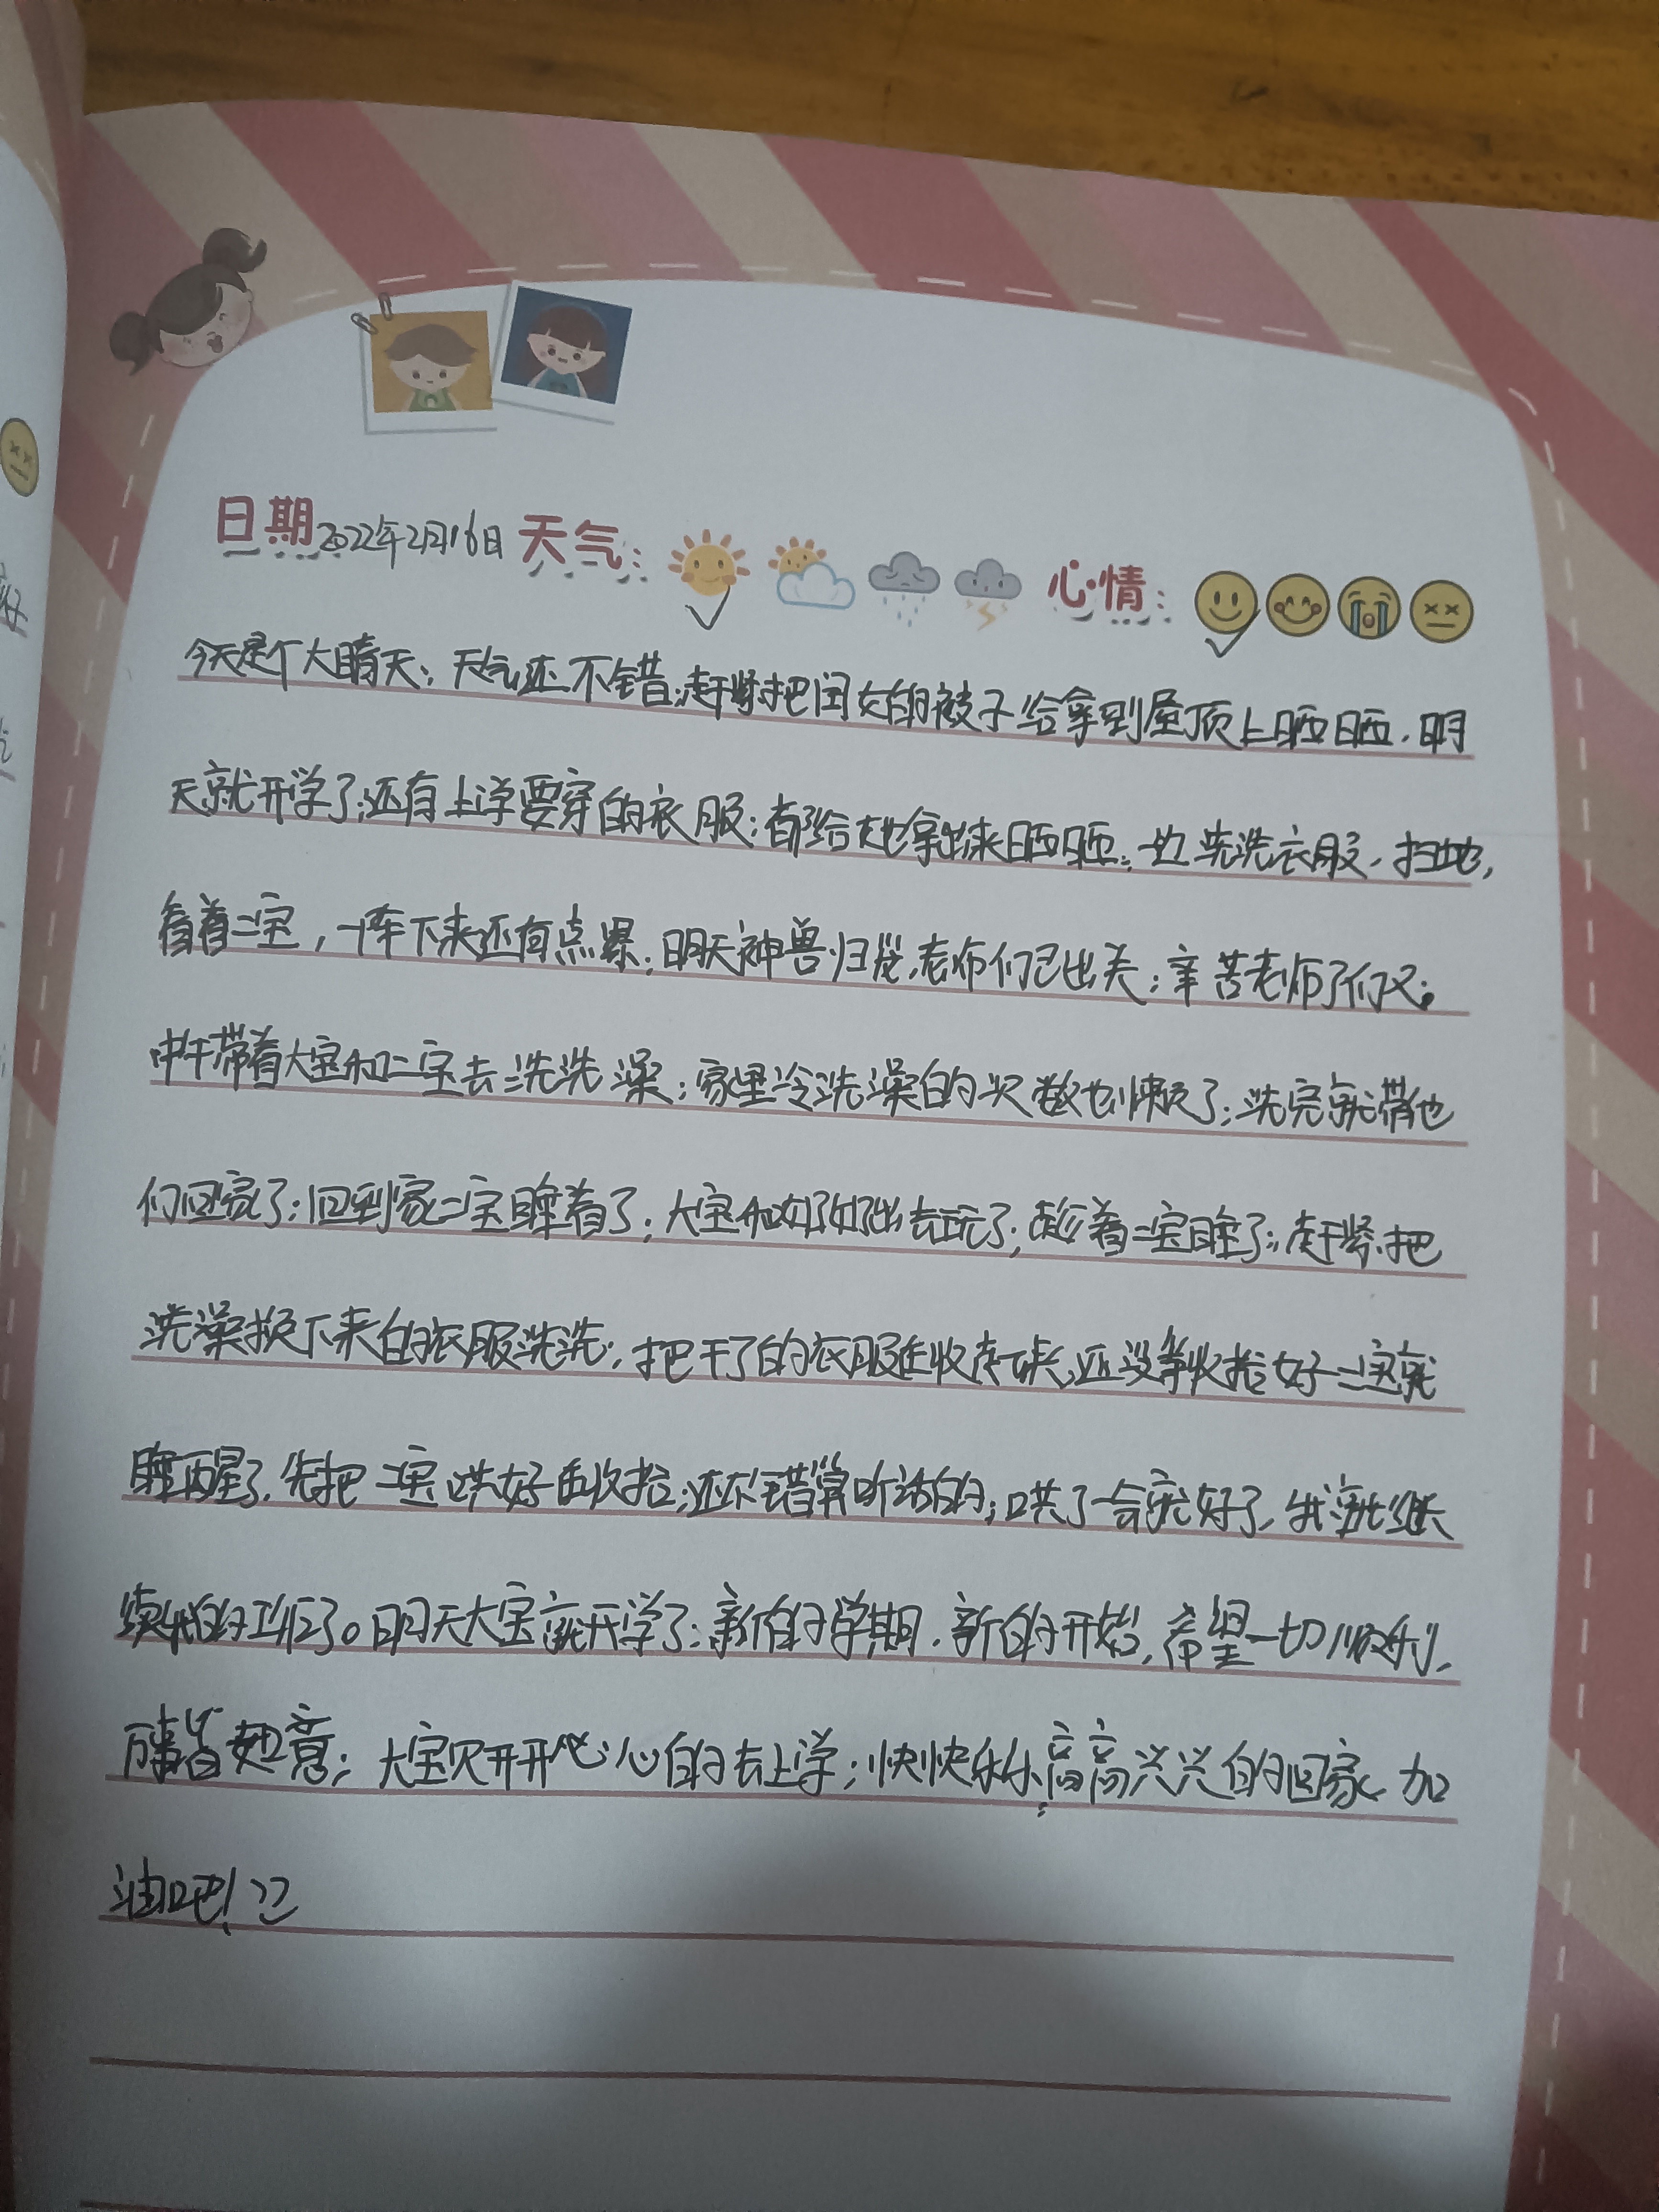 日期2022年2月16日 天气: 心情:
今天是个大晴天;天气还不错;赶紧把闺女的被子给拿到屋顶上晒晒.明
天就开学了;还有上学要穿的衣服;都给她拿出来晒晒;边洗洗衣服、扫地,
看着二宝,一阵下来还有点累;明天神兽归笼,老师们已出关;辛苦老师了们又;
中午带着大宝和二宝去洗洗澡;家里冷洗澡的次数也懒了;洗完就带他
们回家了;回到家二宝睡着了;大宝和奶奶出去玩了;趁着二宝睡了;赶紧把
洗澡换下来的衣服洗洗;把干了的衣服收起来;还没等收拾好二宝就
睡醒了.先把二宝哄好再收拾;还不错算听话的;哄了一会就好了,我就继
续我的工作了。明天大宝就开学了;新的学期.新的开始,希望一切顺利,
万事皆如意;大宝贝开开心心的去上学;快快乐乐;高高兴兴的回家、加
油吧!